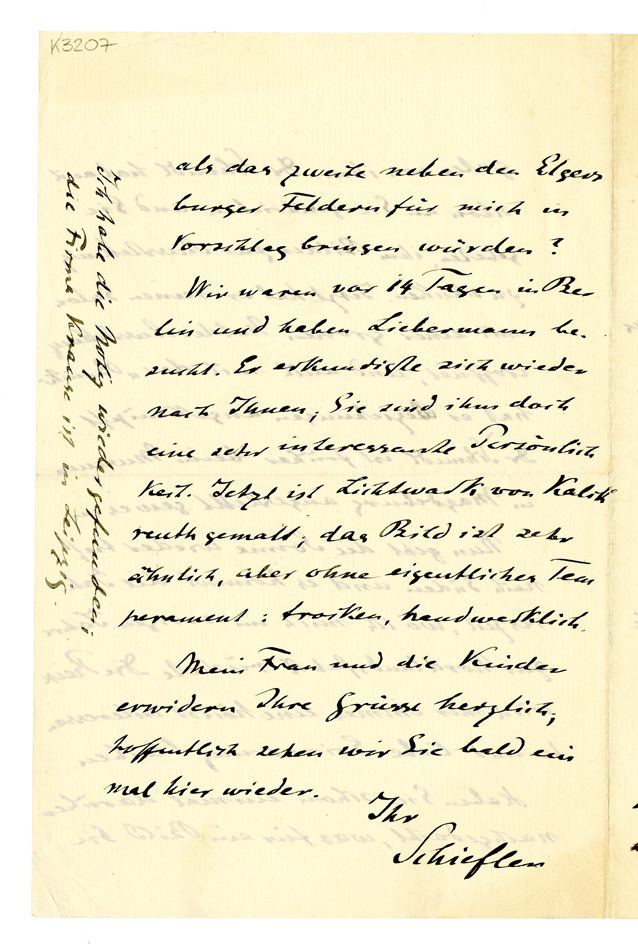 K3207
als das zweite neben den Elgers
burger Feldern für mich in
Vorschlag bringen würden?
Wir waren vor 14 Tagen in Ber
lin und haben Liebermanns be-
sucht. Er erkundigte sich wieder
nach Ihnen; Sie sind ihm doch
eine sehr interessante Persönlich
keit. Jetzt ist Lichtwark von Kalck
reuth gemalt; das Bild ist sehr
ähnlich, aber ohne eigentliches Tem
perament: trocken, handwerklich.
Mein Frau und die Kinder
erwidern Ihre Grüsse herzlich;
hoffentlich sehen wir Sie bald ein
mal hier wieder.
Ihr
Schiefler
Ich habe die Notiz wiedergefunden:
die Firma Krause ist in Leipzig.